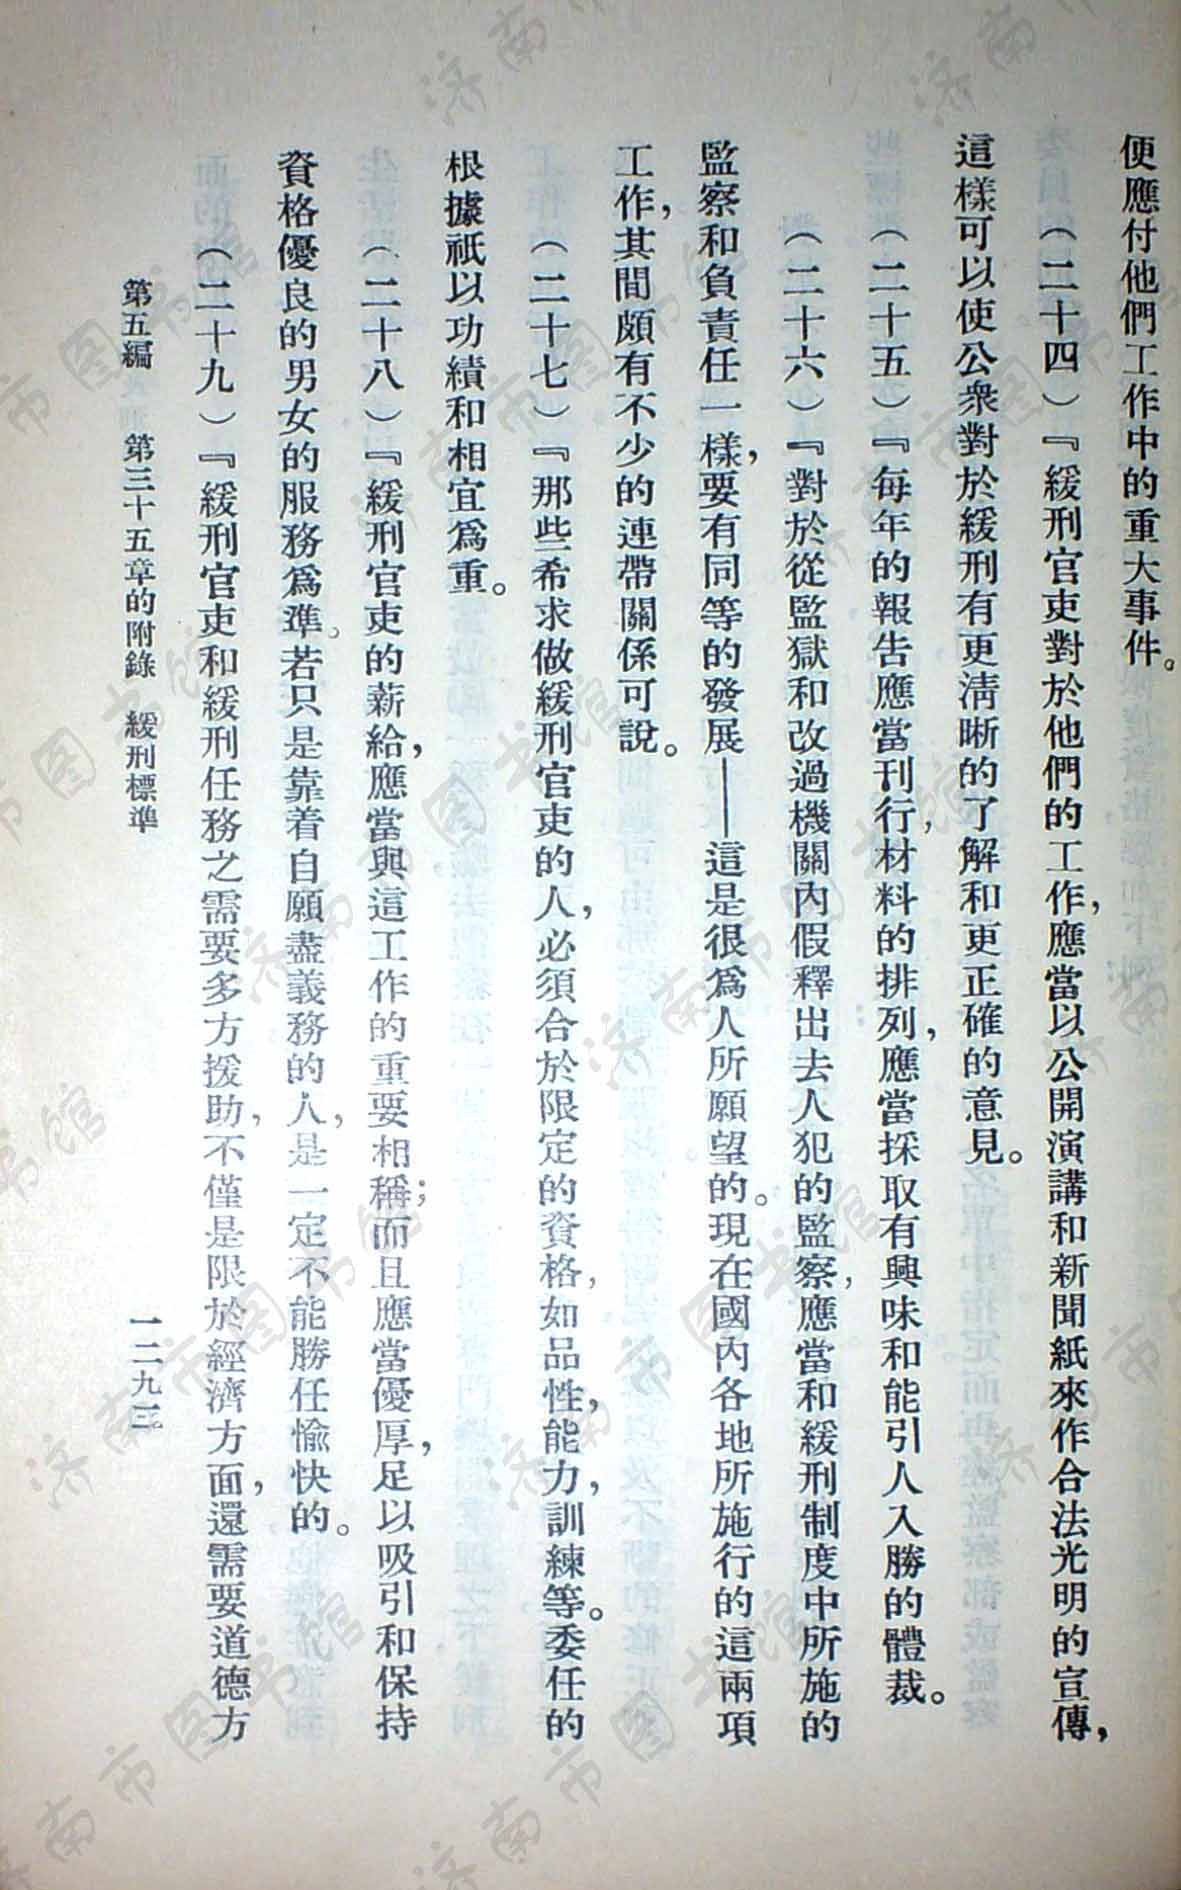 便應付他們工作中的重大事件。
（二十四）『緩刑官吏對於他們的工作，應當以公開演講和新聞紙來作合法光明的宣傳，
這樣可以使公衆對於緩刑有更淸晰的了解和更正確的意見。
（二十五）『每年的報告應當刊行，材料的排列，應當採取有興味和能引人入勝的體裁。
（二十六）『對於從監獄和改過機關內假釋出去人犯的監察，應當和緩刑制度中所施的
監察和負責任一樣，要有同等的發展——這是很爲人所願望的。現在國內各地所施行的這兩項
工作，其間頗有不少的連帶關係可說。
（二十七）『那些希求做緩刑官吏的人，必須合於限定的資格，如品性，能力，訓練等。委任的
根據祇以功績和相宜爲重。
（二十八）『緩刑官吏的薪給，應當與這工作的重要相稱；而且應當優厚，足以吸引和保持
資格優良的男女的服務爲準。若只是靠着自願盡義務的人，是一定不能勝任愉快的。
（二十九）『緩刑官吏和緩刑任務之需要多方援助，不僅是限於經濟方面，還需要道德方
第五編　第三十五章的附錄　緩刑標準
一二九三
济南市图书馆